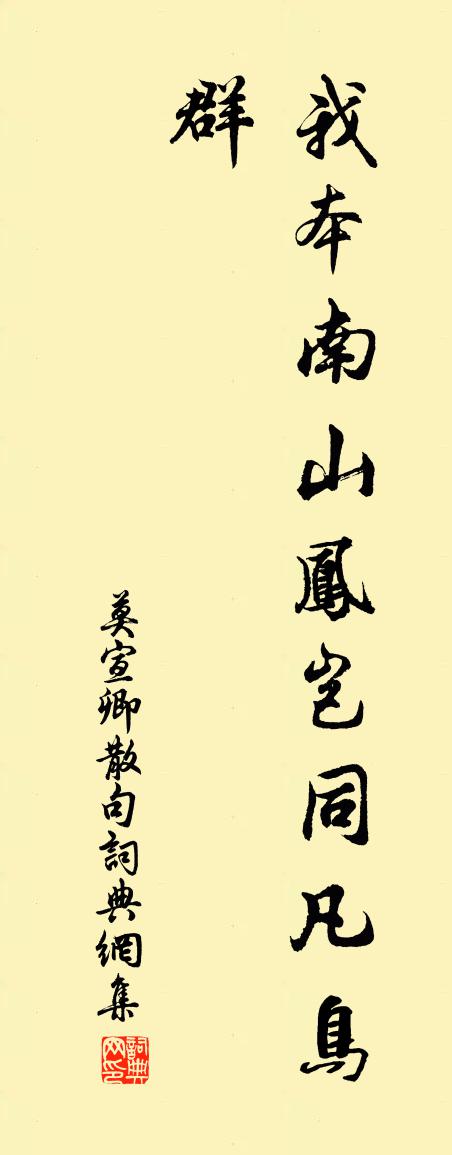 我本南山鳳豈同凡鳥
群
莫宣卿散句詞典網集
詞典网印